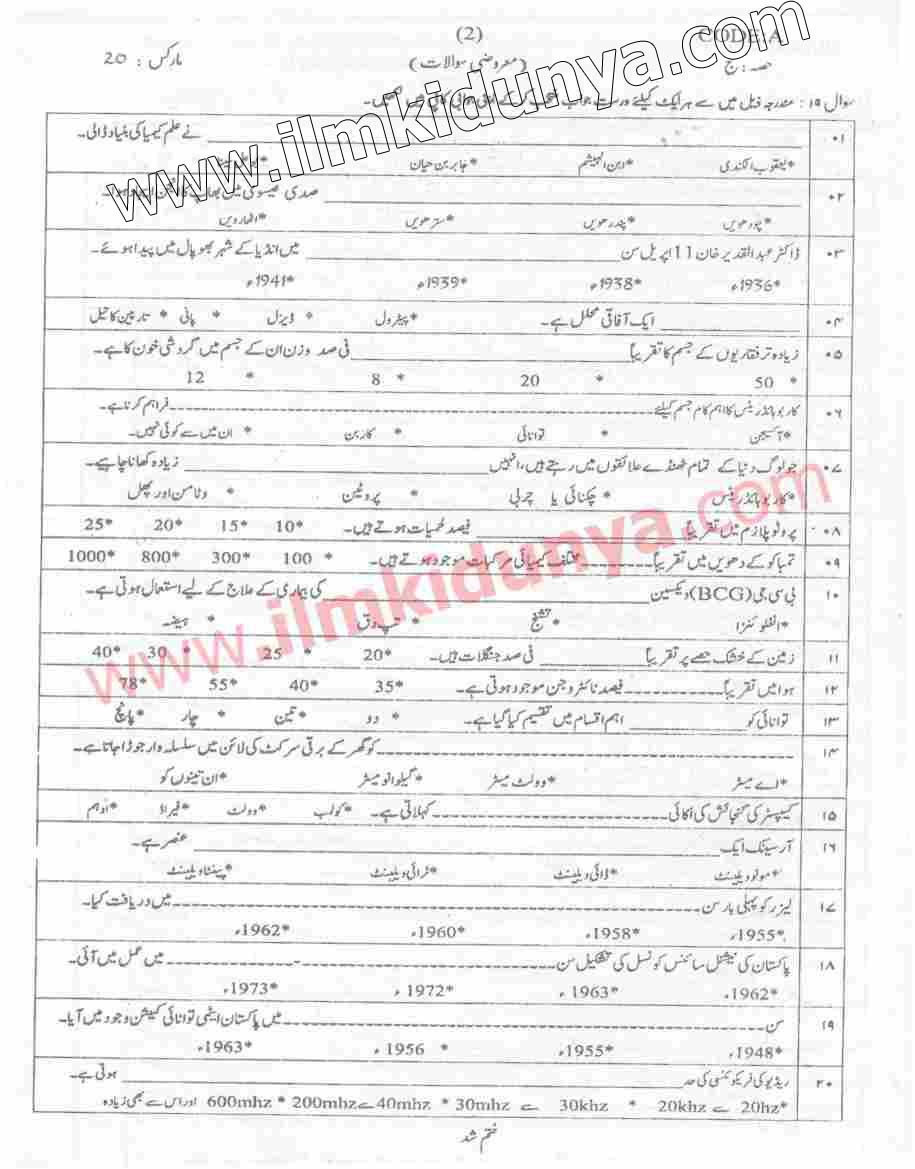 (2)
CODE:A
حصہ : ج
(معروضی سوالات)
مارکس : 20
سوال ۱۹ : مندرجہ ذیل میں سے ہر ایک کیلئے درست جواب
www.ilmkidunya.com
۰۱ ____________ نے علم کیمیا کی بنیاد ڈالی۔
*یعقوب الکندی *ابن الہیشم *جابر بن حیان
۰۲ ____________ صدی عیسوی میں بھاپ کا
چودھویں *پندرھویں *سترھویں *اٹھارویں
۰۳ ڈاکٹر عبدالقدیر خان 11 اپریل سن ____________ میں انڈیا کے شہر بھوپال میں پیدا ہوئے۔
*1936ء *1938ء *1939ء *1941ء
۰۴ ____________ ایک آفاقی محلل ہے۔ *پیٹرول * ڈیزل * پانی * تارپین کا تیل
۰۵ زیادہ تر فقاریوں کے جسم کا تقریباً ____________ فی صد وزن ان کے جسم میں گردشی خون کا ہے۔
* 50 * 20 * 8 * 12
۰۶ کاربوہائڈریٹس کا اہم کام جسم کیلئے ____________ فراہم کرنا ہے۔
*آکسیجن * توانائی * کاربن * ان میں سے کوئی نہیں۔
۰۷ جو لوگ دنیا کے تمام ٹھنڈے علائقوں میں رہتے ہیں، انہیں ____________ زیادہ کھانا چاہیے۔
*کاربوہائڈریٹس * چکنائی یا چربی * پروٹین * وٹامن اور پھل
۰۸ پروٹوپلازم میں تقریباً ____________ فیصد لحمیات ہوتے ہیں۔ *10 *15 *20 *25
۰۹ تمباکو کے دھویں میں تقریباً ____________ مختلف کیمیائی مرکبات موجود ہوتے ہیں۔ * 100 *300 *800 *1000
۱۰ بی سی جی (BCG) ویکسین ____________ کی بیماری کے علاج کے لیے استعمال ہوتی ہے۔
*انفلوئنزا * تشنج * تپ دق * ہیضہ
۱۱ زمین کے خشک حصے پر تقریباً ____________ فی صد جنگلات ہیں۔ *20 * 25 * 30 *40
۱۲ ہوا میں تقریباً ____________ فیصد نائٹروجن موجود ہوتی ہے۔ *35 *40 *55 *78
۱۳ توانائی کو ____________ اہم اقسام میں تقسیم کیا گیا ہے۔ * دو * تین * چار *پانچ
۱۴ ____________ کو گھر کے برقی سرکٹ کی لائن میں سلسلہ وار جوڑا جاتا ہے۔
*اے میٹر *وولٹ میٹر *گیلوانو میٹر *ان تینوں کو
۱۵ کیپسٹر کی گنجائش کی اکائی ____________ کہلاتی ہے۔ *کولب *وولٹ *فیراڈ *اوہم
۱۶ آرسینک ایک ____________ عنصر ہے۔
*مونو ویلینٹ *ڈائی ویلینٹ *ٹرائی ویلینٹ *پینٹا ویلینٹ
۱۷ لیزر کو پہلی بار سن ____________ میں دریافت کیا۔
*1955ء *1958ء *1960ء *1962ء
۱۸ پاکستان کی نیشنل سائنس کونسل کی تشکیل سن ____________ میں عمل میں آئی۔
*1962ء *1963 ء *1972 ء *1973ء
۱۹ سن ____________ میں پاکستان ایٹمی توانائی کمیشن وجود میں آیا۔
*1948ء *1955ء * 1956 ء *1963ء
۲۰ ریڈیو کی فریکوئنسی کی حد ____________ ہوتی ہے۔
*20hz سے 20khz * 30khz سے 30mhz * 40mhz سے 200mhz * 600mhz اور اس سے بھی زیادہ
ختم شد
www.ilmkidunya.com